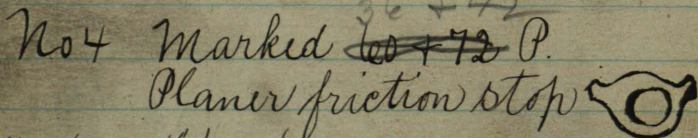 36 + 42
No 4 Marked 60 + 72 P.
Planer friction stop